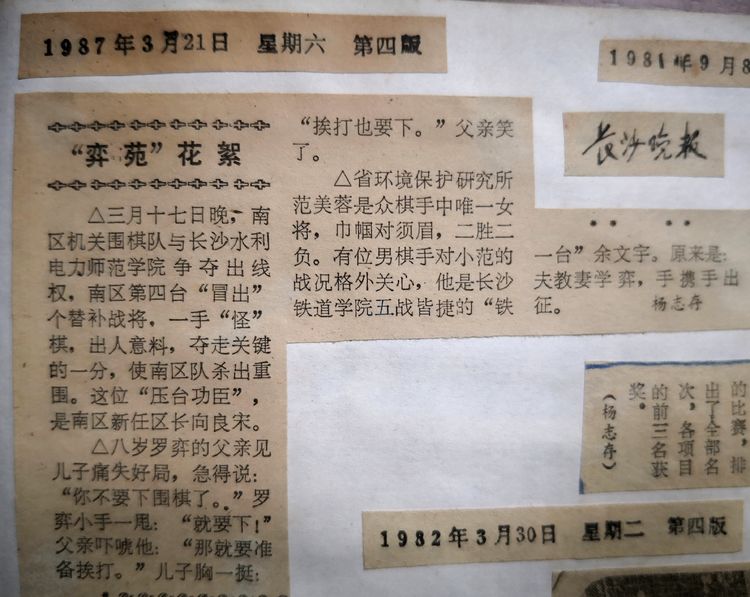 1987年3月21日 星期六 第四版
1981年9月8
长沙晚报
“弈苑”花絮
△三月十七日晚，南
区机关围棋队与长沙水利
电力师范学院争夺出线
权，南区第四台“冒出”
个替补战将，一手“怪”
棋，出人意料，夺走关键
的一分，使南区队杀出重
围。这位“压台功臣”，
是南区新任区长向良宋。
△八岁罗弈的父亲见
儿子痛失好局，急得说：
“你不要下围棋了。”罗
弈小手一甩：“就要下！”
父亲吓唬他：“那就要准
备挨打。”儿子胸一挺：
“挨打也要下。”父亲笑
了。
△省环境保护研究所
范美蓉是众棋手中唯一女
将，巾帼对须眉，二胜二
负。有位男棋手对小范的
战况格外关心，他是长沙
铁道学院五战皆捷的“铁
一台”余文宇。原来是：
夫教妻学弈，手携手出
征。 杨志存
的比赛，排
出了全部名
次，各项目
的前三名获
奖。
（杨志存）
1982年3月30日 星期二 第四版